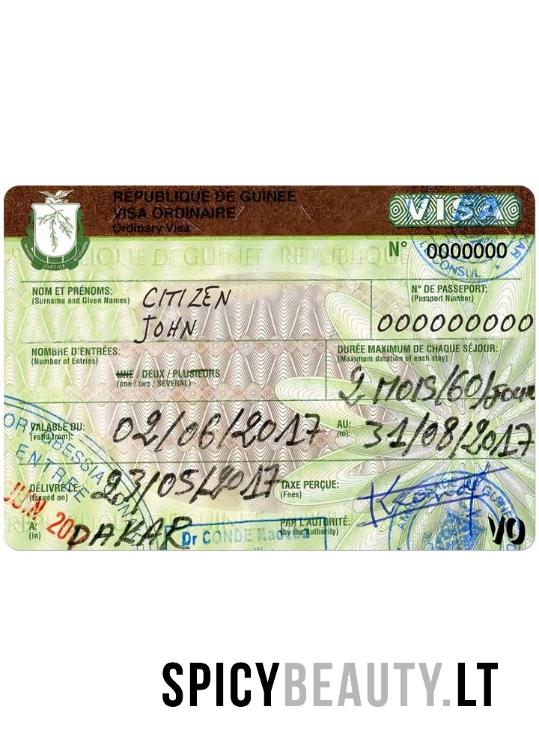 RÉPUBLIQUE DE GUINÉE
VISA ORDINAIRE
Ordinary Visa
VISA
N° 0000000
CONSUL
NOM ET PRÉNOMS:
(Surname and Given Names)
CITIZEN
JOHN
N° DE PASSEPORT:
(Passport Number)
000000000
NOMBRE D'ENTRÉES:
(Number of Entries)
UNE / DEUX / PLUSIEURS
(one / two / SEVERAL)
DURÉE MAXIMUM DE CHAQUE SÉJOUR:
(Maximum duration of each stay)
2 MOIS/60/Jour
VALABLE DU:
(valid from):
02/06/2017
AU:
(to):
31/08/2017
ENTRÉE
DÉLIVRÉ LE:
(Issued on)
23/05/2017
TAXE PERÇUE:
(Fees)
JUIN 20
A:
(in)
DAKAR
Dr CONDE
PAR L'AUTORITÉ:
(by the Authority)
VO
SPICYBEAUTY.LT